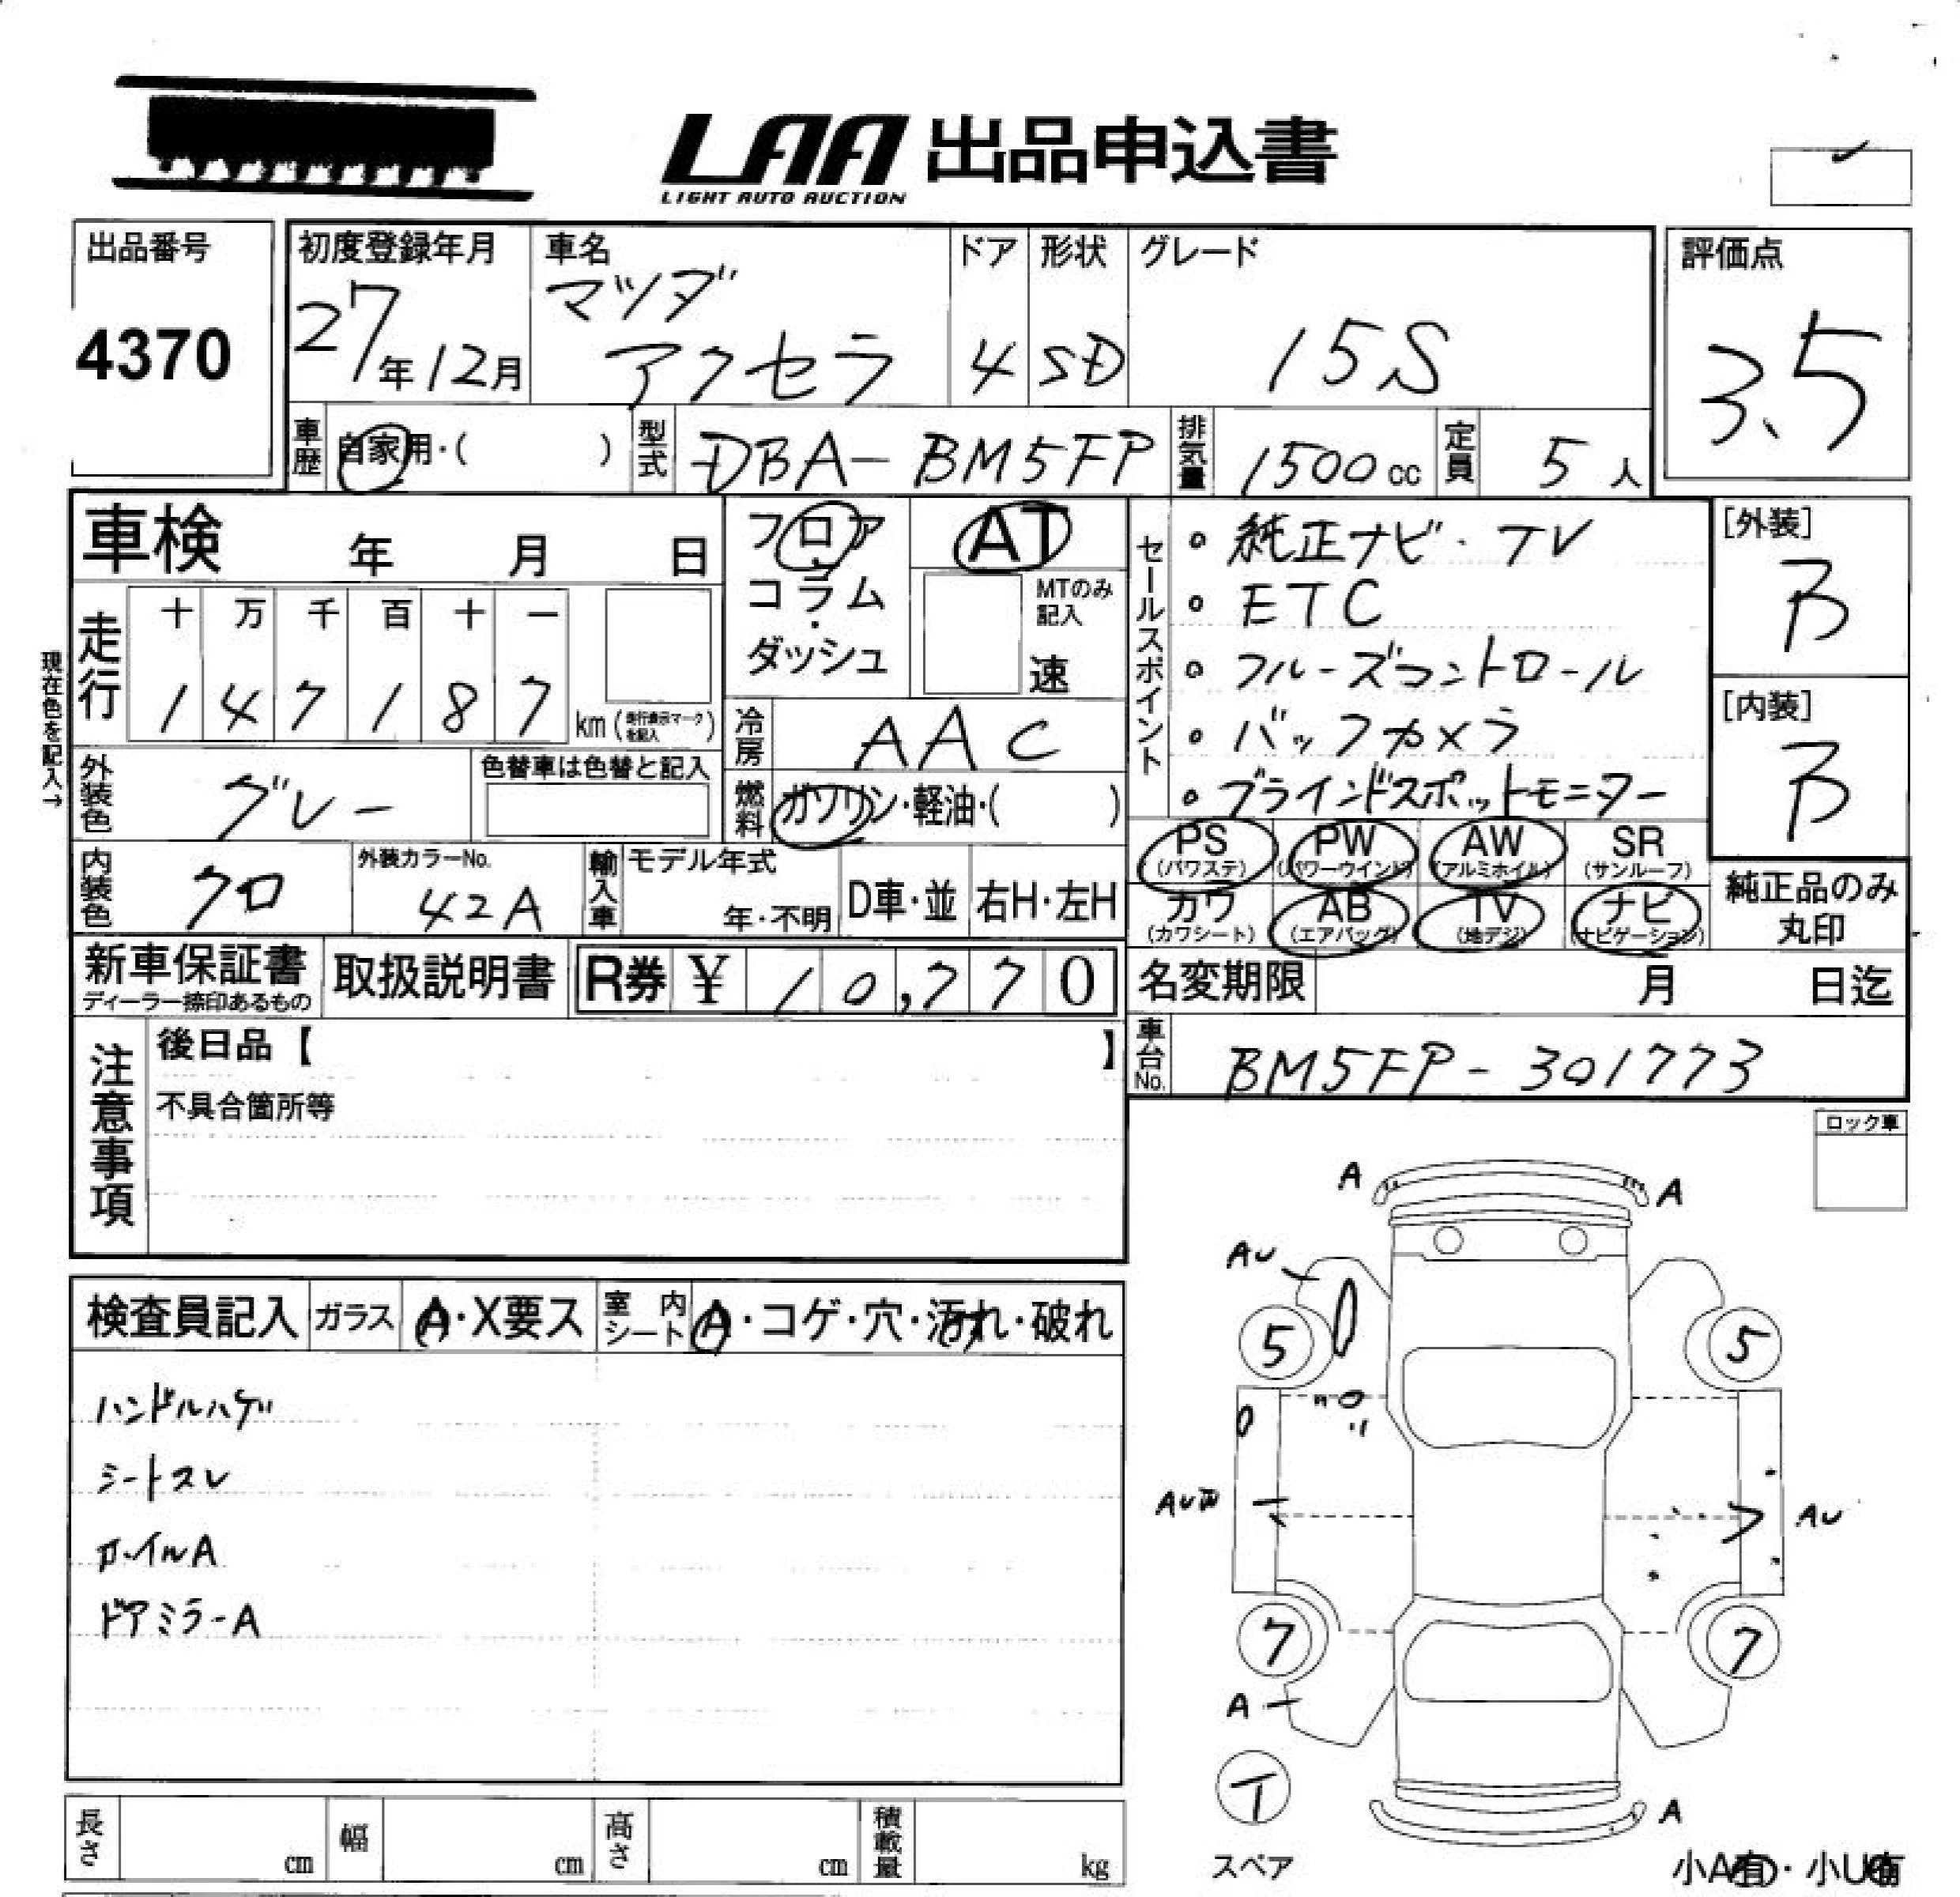 LAA 出品申込書
LIGHT AUTO AUCTION
出品番号
4370
初度登録年月
27年12月
車名
マツダ
アクセラ
ドア
4
形状
SD
グレード
15S
評価点
3.5
車歴
自家用・( )
型式
DBA-BM5FP
排気量
1500cc
定員
5人
車検 年 月 日
フロア・コラム・ダッシュ
AT
MTのみ記入
速
セールスポイント
・純正ナビ・TV
・ETC
・クルーズコントロール
・バックカメラ
・ブラインドスポットモニター
[外装]
B
[内装]
B
現在色を記入→
走行
十 万 千 百 十 一
1 4 7 1 8 7 km (走行表示マークを記入)
冷房
AAC
外装色
グレー
色替車は色替と記入
燃料
ガソリン・軽油・( )
内装色
クロ
外装カラーNo.
42A
輸入車
モデル年式
年・不明
D車・並
右H・左H
PS (パワステ)
PW (パワーウインド)
AW (アルミホイル)
SR (サンルーフ)
カワ (カワシート)
AB (エアバッグ)
TV (地デジ)
ナビ (ナビゲーション)
純正品のみ丸印
新車保証書
ディーラー捺印あるもの
取扱説明書
R券 ¥ 10,770
名変期限 月 日迄
車台No.
BM5FP-301773
注意事項
後日品【 】
不具合箇所等
ロック車
検査員記入
ガラス
A・X要ス
室内シート
A・コゲ・穴・汚れ・破れ
ハンドルハゲ
シートスレ
ホイルA
ドアミラーA
A
A
AU
5
5
AU
AU
7
7
A
T
スペア
A
小A有・小U有
長さ cm
幅 cm
高さ cm
積載量 kg